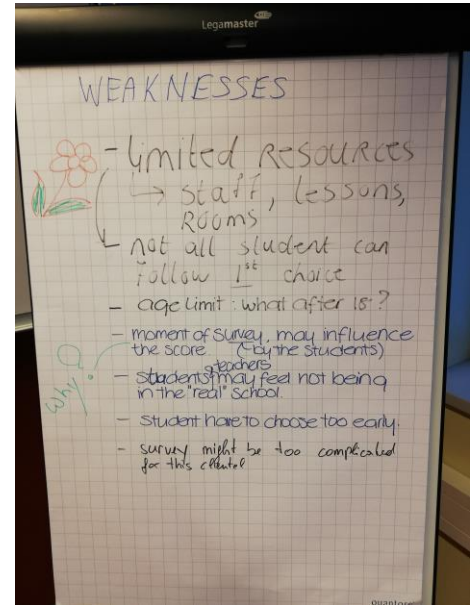 Legamaster
WEAKNESSES
- limited RESOURCES
→ staff, lessons,
ROOMS
not all student can
follow 1st choice
- age limit: what after 18?
- moment of survey, may influence
the score (by the students)
teachers
- students may feel not being
in the "real" school.
- student have to choose too early.
- survey might be too complicated
for this clientel
Why?
quantore